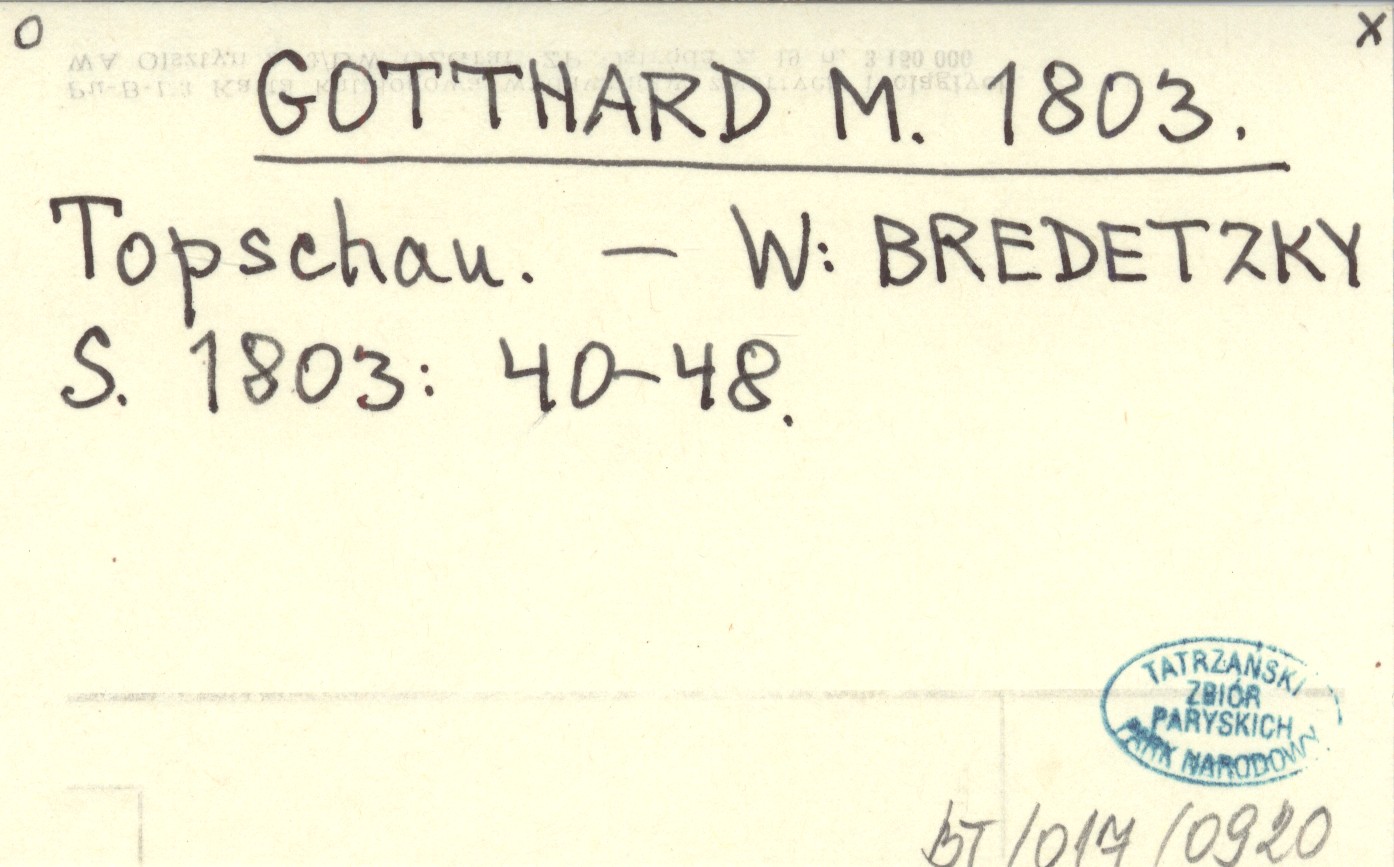 O X
GOTTHARD M. 1803.
Topschau. — W: BREDETZKY
S. 1803: 40-48.
TATRZAŃSKI
ZBIÓR
PARYSKICH
PARK NARODOWY
BT/017/0920